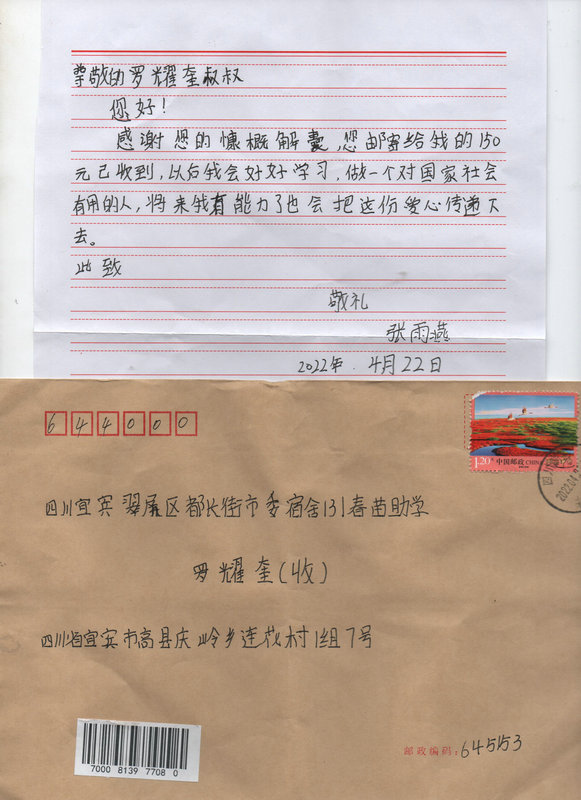 尊敬的罗耀奎叔叔
您好！
感谢您的慷概解囊,您邮寄给我的150
元已收到,以后我会好好学习,做一个对国家社会
有用的人,将来我有能力了也会把这份爱心传递下
去。
此致
敬礼
张雨燕
2022年.4月22日
644000
1.20元 中国邮政 CHINA
四川
2022.04
四川宜宾翠屏区都长街市委宿舍131春苗助学
罗耀奎(收)
四川省宜宾市高县庆岭乡莲花村1组7号
7000 8139 7708 0
邮政编码:645153